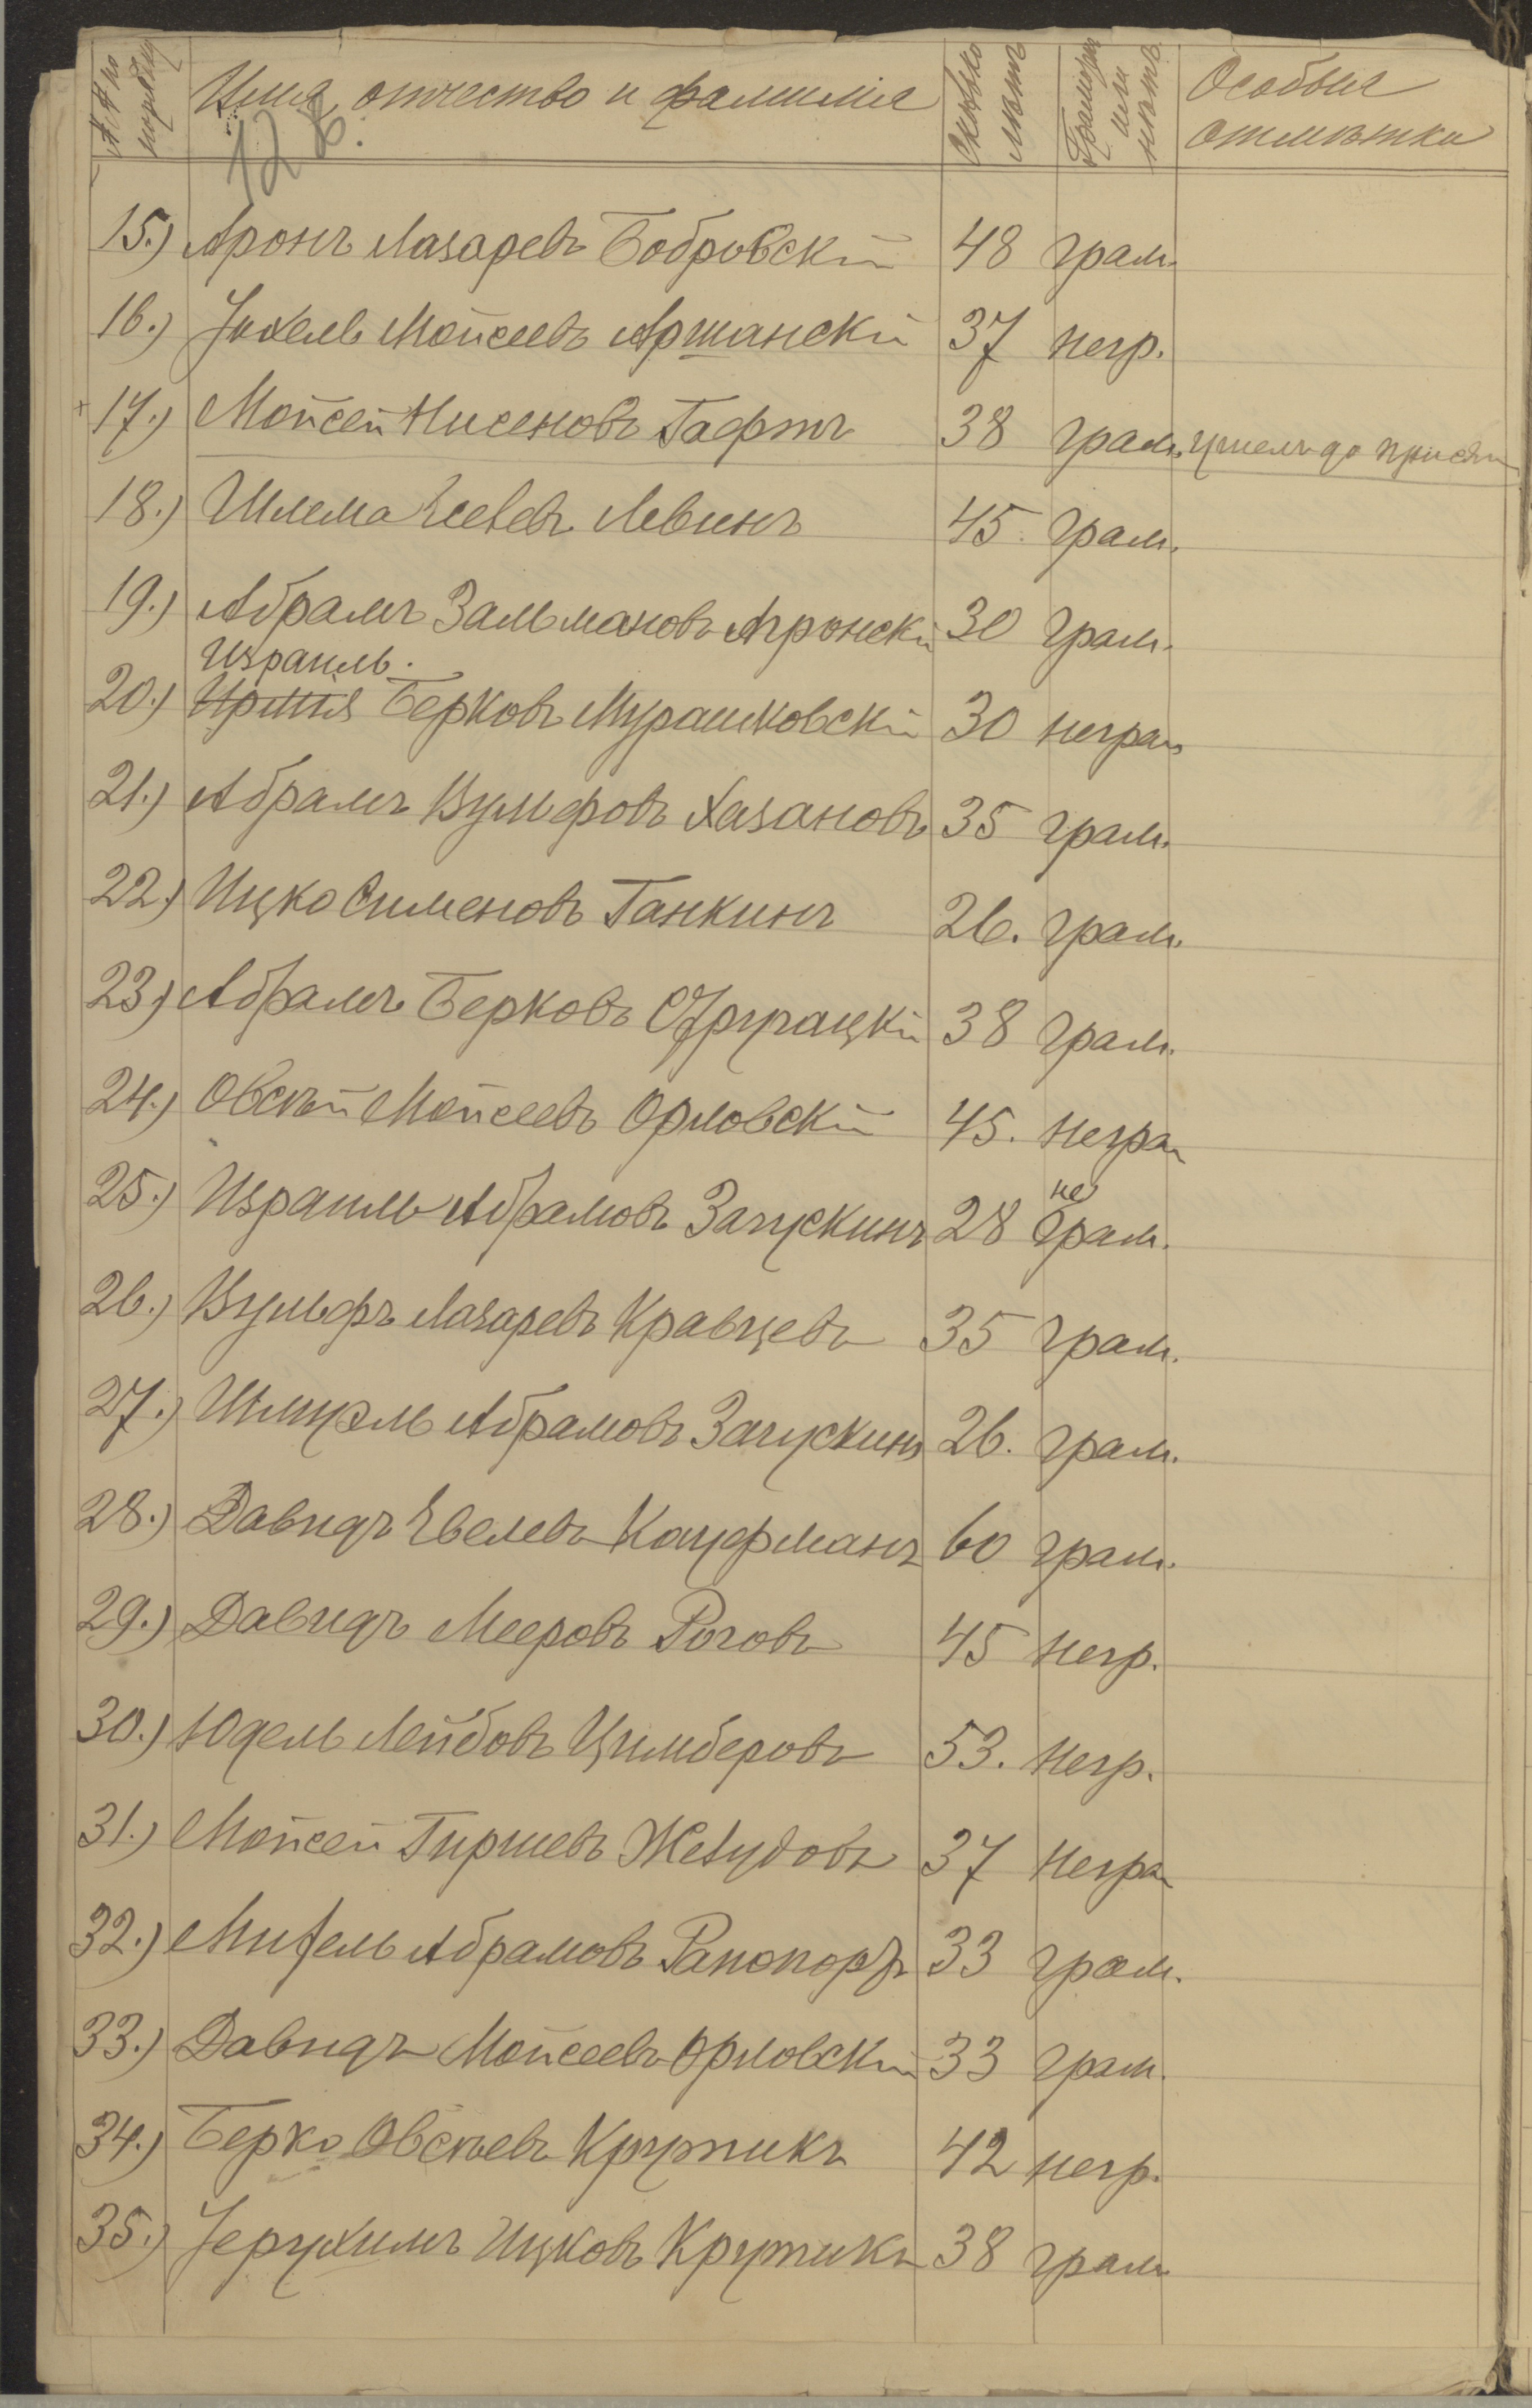 №№ по порядку Имя, отчество и фамилія Сколько лѣтъ Грамотн. или нѣтъ Особыя отмѣтки
128.
15.) Аронъ Лазаревъ Бобровскій 48 грам.
16.) Іохель Мойсеевъ Аршанскій 37 негр.
17.) Мойсей Нисеновъ Гафтъ 38 грам. ушелъ до присяги
18.) Шлема Евелевъ Левинъ 45 грам.
19.) Абрамъ Зальмановъ Агронскій 30 грам.
Израиль.
20.) Берковъ Мурашковскій 30 неграм
21.) Абрамъ Вульфовъ Хазановъ 35 грам.
22.) Ицко Сименовъ Ганкинъ 26. грам.
23.) Абрамъ Берковъ 38 грам.
24.) Овсѣй Мойсеевъ Орловскій 45. неграм
25.) Израиль Абрамовъ Загускинъ 28 не грам.
26.) Вульфъ Лазаревъ Кравцевъ 35 грам.
27.) Шмуэль Абрамовъ Загускинъ 26. грам.
28.) Давидъ Евелевъ Кауфманъ 60 грам.
29.) Давидъ Мееровъ Роговъ 45 негр.
30.) Юдель Лейбовъ Цимберовъ 53. негр.
31.) Мойсей Гиршевъ 37 неграм
32.) Михель Абрамовъ Рапопортъ 33 грам.
33.) Давидъ Мойсеевъ Орловскій 33 грам.
34.) Берко Овсѣевъ Крутикъ 42 негр.
35.) Іерухимъ Ицковъ Крутикъ 38 грам.